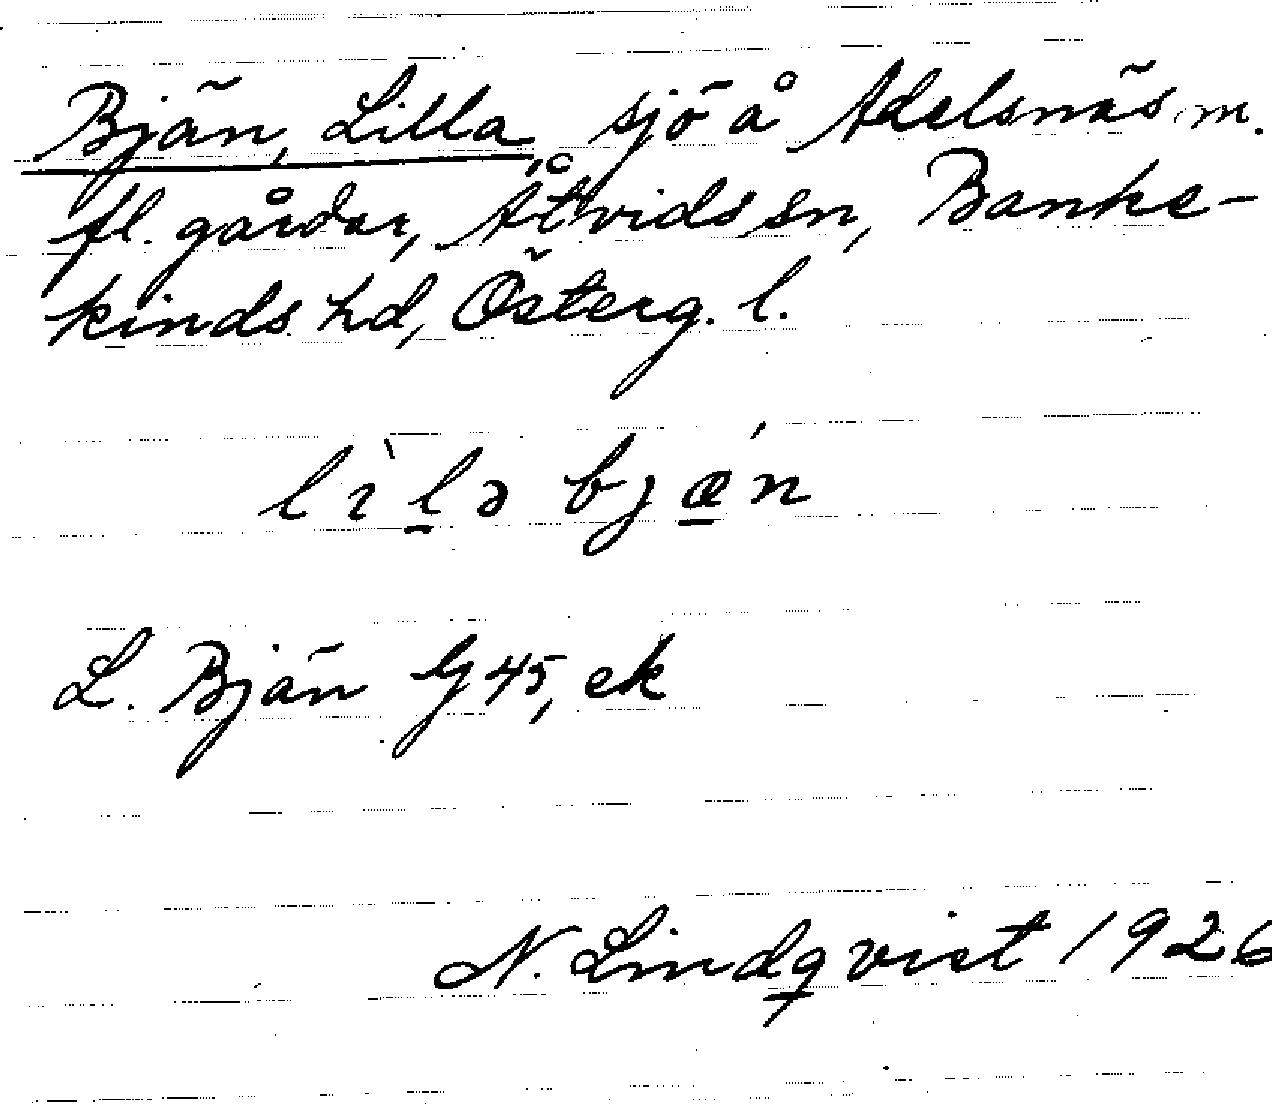 Bjän, Lilla, sjö å Adelsnäs m.
fl. gårdar, Åtvids sn, Banke-
kinds hd, Österg. l.
lìlə bjǽn
L. Bjän G 45, ek
N. Lindqvist 1926